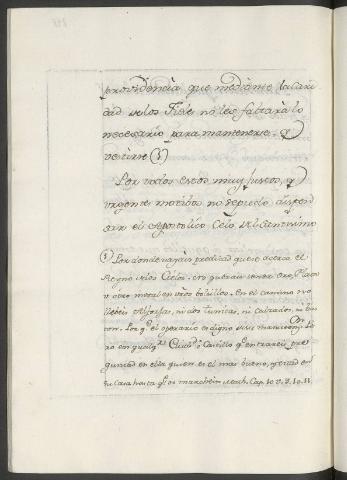 providencia que mediante la cari
dad de los Fieles no les faltará lo
necesario para mantenerse, y
vestirse (1)
Por todos estos muy justos, y
urgentes motibos no se puedo dispen
sar el Apostolico Celo del Santisimo
(1) Por donde vayais predicad que se acerca el
Reyno de los Cielos. no querais tener Oro, Plata
u otro metal en vros bolsillos. En el camino no
llebeis Alforjas, ni dos Tunicas, ni Calzados, ni bas
ton. Por q.e el operario es digno de su manutencion. Pe
ro en qualq.a Ciudad o Castillo q.e entrareis, pre
guntad en ella quien es el mas bueno, y estad en
su Casa hasta q.e os marcheis. Math. Cap. 10 v. 9. 10. 11